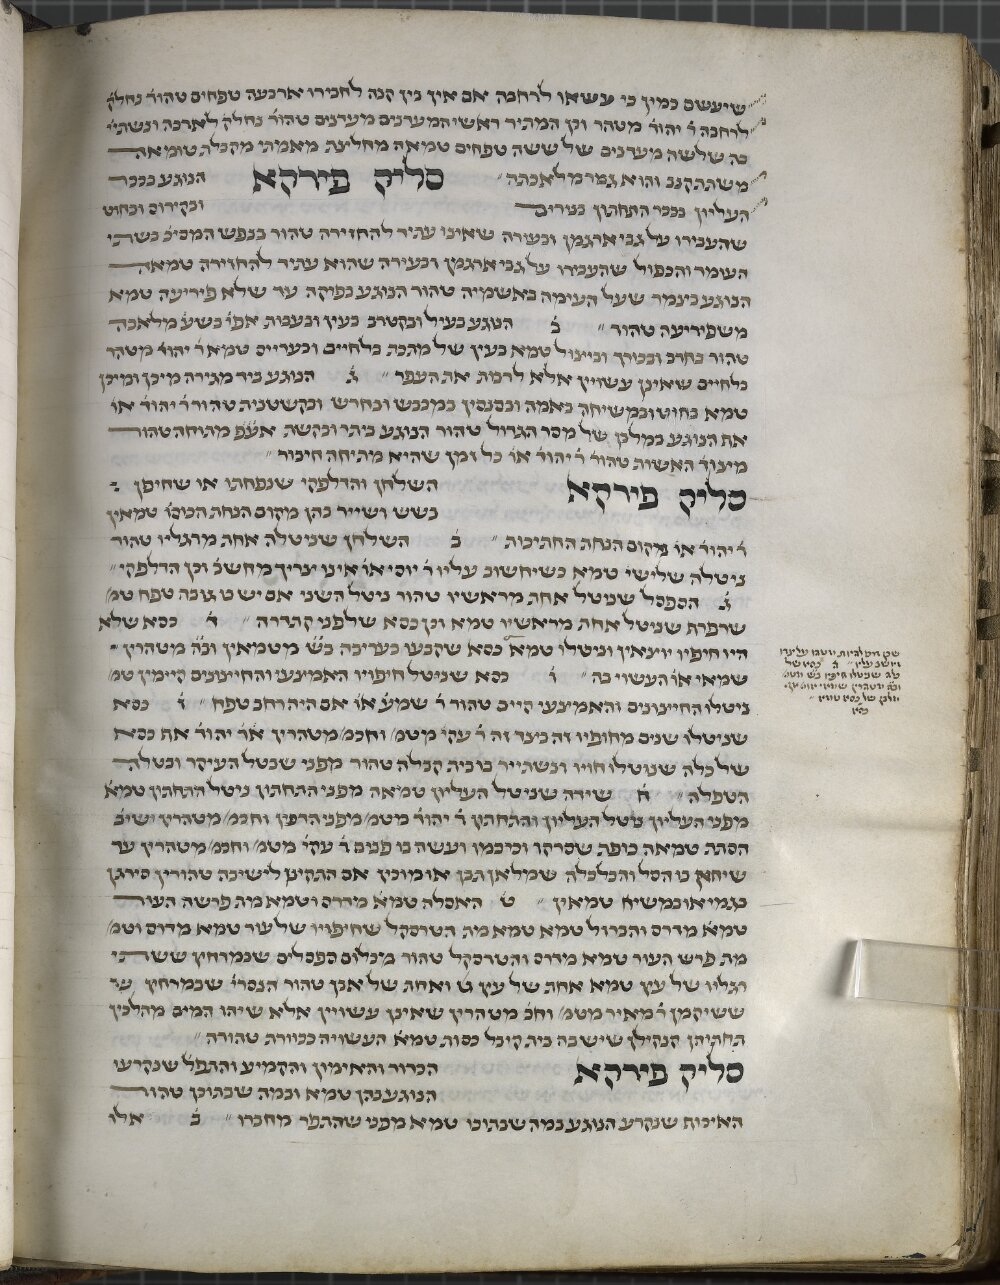 שיעשם כמין כי עשאו לרחבה אם אין בין קנה לחבירו ארבעה טפחים טהור נחלק
לרחבה ר' יהוד' מטהר וכן המתיר ראשי המערנים מערנים טהור נחלק לארכה ונשתיי'
בה שלשה מעדנים של ששה טפחים טמאה מחליצה מאמתי מקבלת טומאה
משתתקנב והוא גמר מלאכתה״ סליק פירקא הנוגע בככר
העליון בככי התחתון בצורים ובקירוס ובחוט
שהעבירו על גבי ארגמן ובעורה שאינו עתיד להחזירה טהור בנפש המסיב' בשתי
העומד והכפול שהעבירו על גבי ארגמן ובעירה שהוא עתיד להחזירה טמאה
הנוגע בצמר שעל העימה באשמיה טהור הנוגע בפיקה עד שלא פירעה טמא
משפירעה טהור״ ב' הנוגע בעיל ובקטרב בעין ובעבות אפי' בשע' מלאכה
טהור בחרב ובבורך ובייצול טמא בעין של מתכת בלחיים ובערייים טמא ר' יהוד' מטהר
בלחיים שאינן עשויין אלא לרבות את העפר״ ג' הנוגע ביד מגירה מיכן ומיכן
טמא בחוט ובמשיחה באמה ובסנסין במכבש ובחרש ובקשטנית טהור ר' יהוד' או'
את הנוגע במלבן של מסר הגדול טהור הנוגע ביתר ובקשת אע"פ מתוחה טהור
מיצוד האשות טהור ר' יהוד' או' כל זמן שהיא מתיחה חיבור״
סליק פירקא השלחן והדלפקי שנפחתו או שחיפן
בשש ושייר בהן מקום הנחת הכוס' טמאין
ר' יהוד' או' מקום הנחת החתיכות״ ב' השלחן שניטלה אחת מרגליו טהור
ניטלה שלישי' טמא כשיחשוב עליו ר' יוסי או' אינו צריך מחשב' וכן הדלפקי״
ג' הספסל שניטל אחת מראשיו טהור ניטל השני אם יש בו גובה טפח טמ'
שרפרף שניטל אחת מראשיו טמא וכן כסא שלפני קתדרה״ ד' כסא שלא
היו חיפויו יוצאין וניטלו טמא כסא שקבעו בעריבה ב"ש מטמאין וב"ה מטהרין
שמאי או' העשוי בה״ ו' כסא שניטל חיפוייו האמיצעי והחיצונים קיימין טמ'
ניטלו החיצונים והאמיצעי קיים טהור ר' שמע' או' אם היה רחב טפח״ ז' כסא
שניטלו שנים מחופיו זה בצד זה ר' עקי' מטמ' וחכמ' מטהרין א"ר יהוד' אף כסא
של כלה שניטלו חויו ונשתייר בו בית קבלה טהור מפני שבטל העיקר ובטלה
הטפלה״ ח' שידה שניטל העליון טמאה מפני התחתון ניטל התחתון טמא
מפני העליון ניטל העליון והתחתון ר' יהוד' מטמ' מפני הדפין וחכמ' מטהרין ישיב'
הסתת טמאה כופת שסרקו וכיכמו ועשה בו פנים ר' עקי' מטמ' וחכמ' מטהרין עד
שיחוק בו הסל והכלכלה שמילאן תבן או מוכין אם התקינן לישיבה טהורין סירגן
בגמי או במשיח' טמאין״ ט' האסלה טמא מדרס וטמא מת פרשה העור
טמא מדרס והברזל טמא טמא מת הטרסקל שחיפויו של עור טמא מדרס וטמ'
מת פרש העור טמא מדרס והטרסקל טהור מכלום ספסלים שבמרחץ ששתי
רגליו של עץ טמא אחת של עץ ט ואחת של אבן טהור הנסרי' שבמרחץ עד
ששיקמן ר' מאיר מטמ' וחכ' מטהרין שאינן עשויין אלא שיהו המים מהלכין
תחתיהן קנקילין שיש בה בית קיבל כסות טמא העשויה ככוורת טהורה״
סליק פירקא הכדור והאימון והקמיע והתפל' שנקרעו
הנוגע בהן טמא ובמה שבתוכן טהור
האיכוף שנקרע הנוגע במה שבתוכו טמא מפני שהתפר מחברו״ ב' אלו